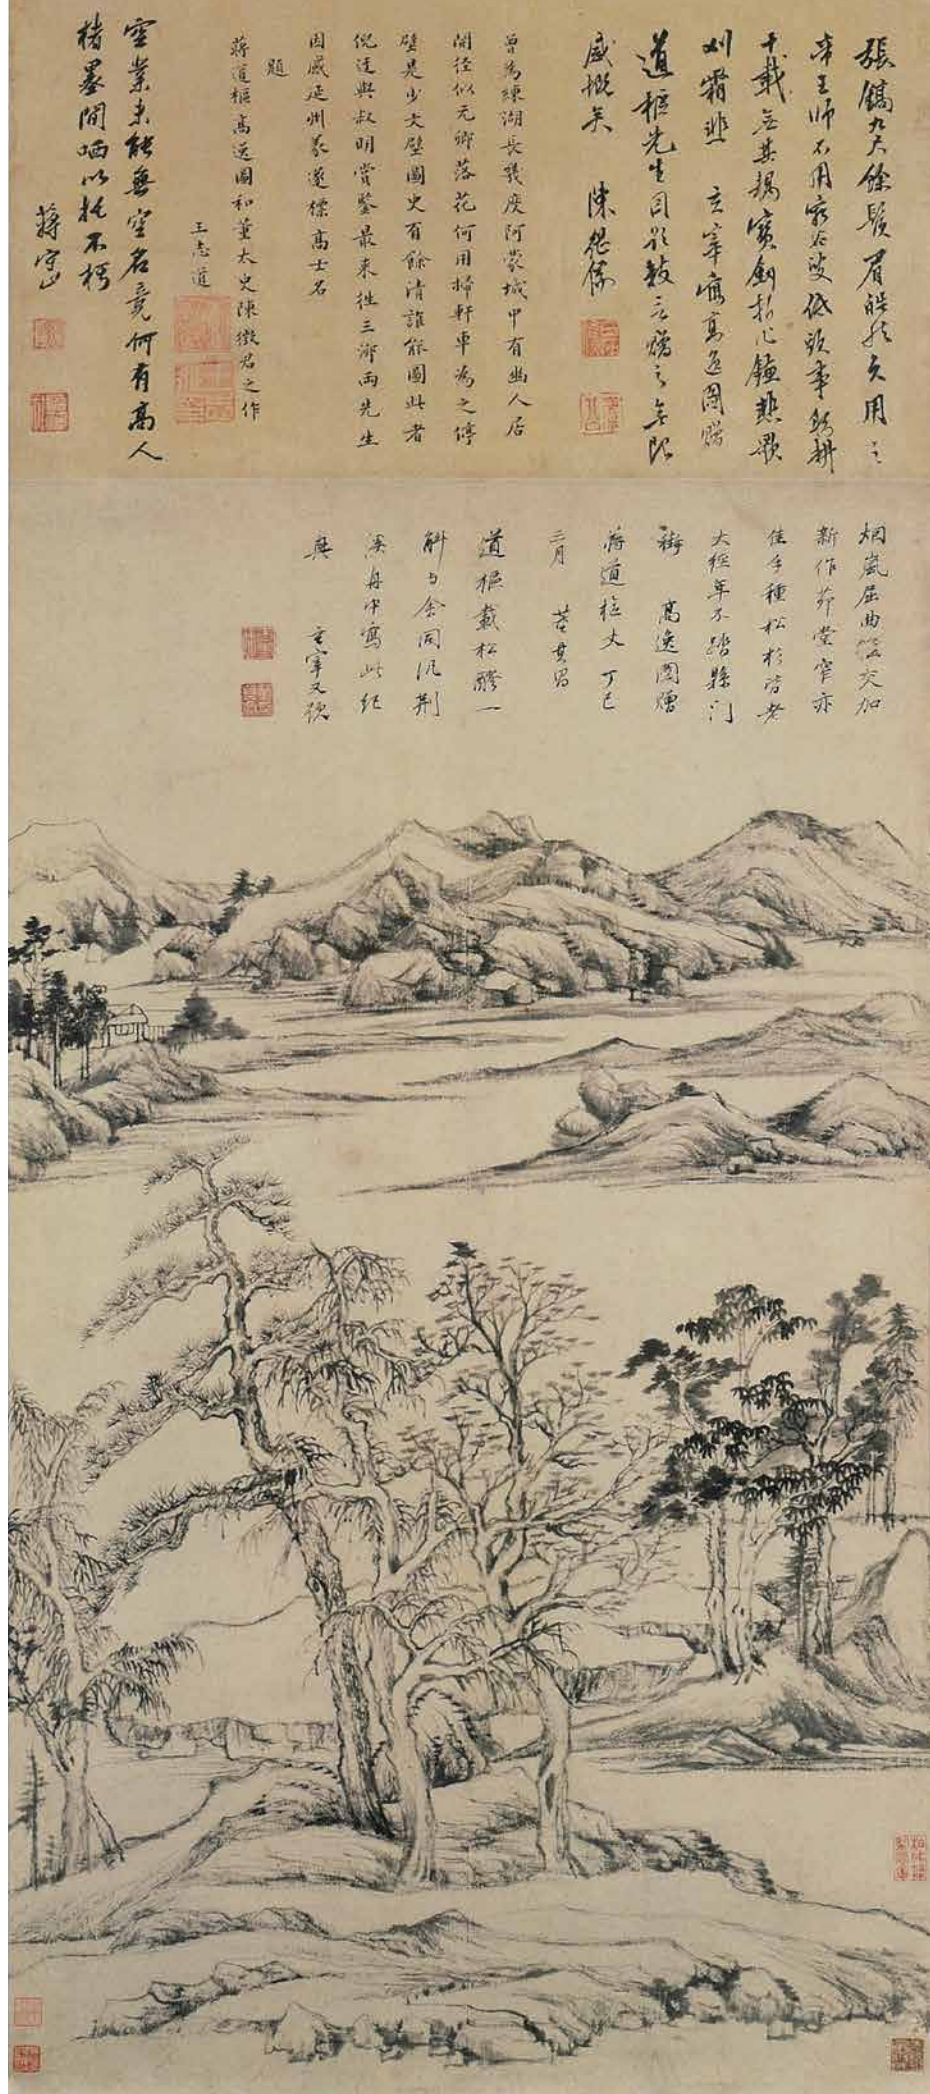 張鎬九尺餘鬚眉皓然久用之
帝王師不用窮谷叟低頭事躬耕
千載無其耦寶劍拆作鐮悲歌
刈霜韭 玄宰寫高逸圖贈
道樞先生因題數言贈之無限
感慨矣 陳繼儒
曾為練湖長幾度阿蒙城中有幽人居
開徑似元卿落花何用掃軒車為之停
壁是少文壁圖史有餘清誰能圖此者
倪迂與叔明賞鑒最來往三泖兩先生
因感延州義遂標高士名
題
蔣道樞高逸圖和董太史陳徵君之作
王志道
空業未能無空名竟何有高人
楮墨間哂以托不朽
蔣守止
烟嵐屈曲徑交加
新作茆堂窄亦
佳手種松杉皆老
大經年不踏縣門
街 高逸圖贈
蔣道樞丈 丁巳
三月 董其昌
道樞載松醪一
斛与余同汎荊
溪舟中寫此紀
興 玄宰又識